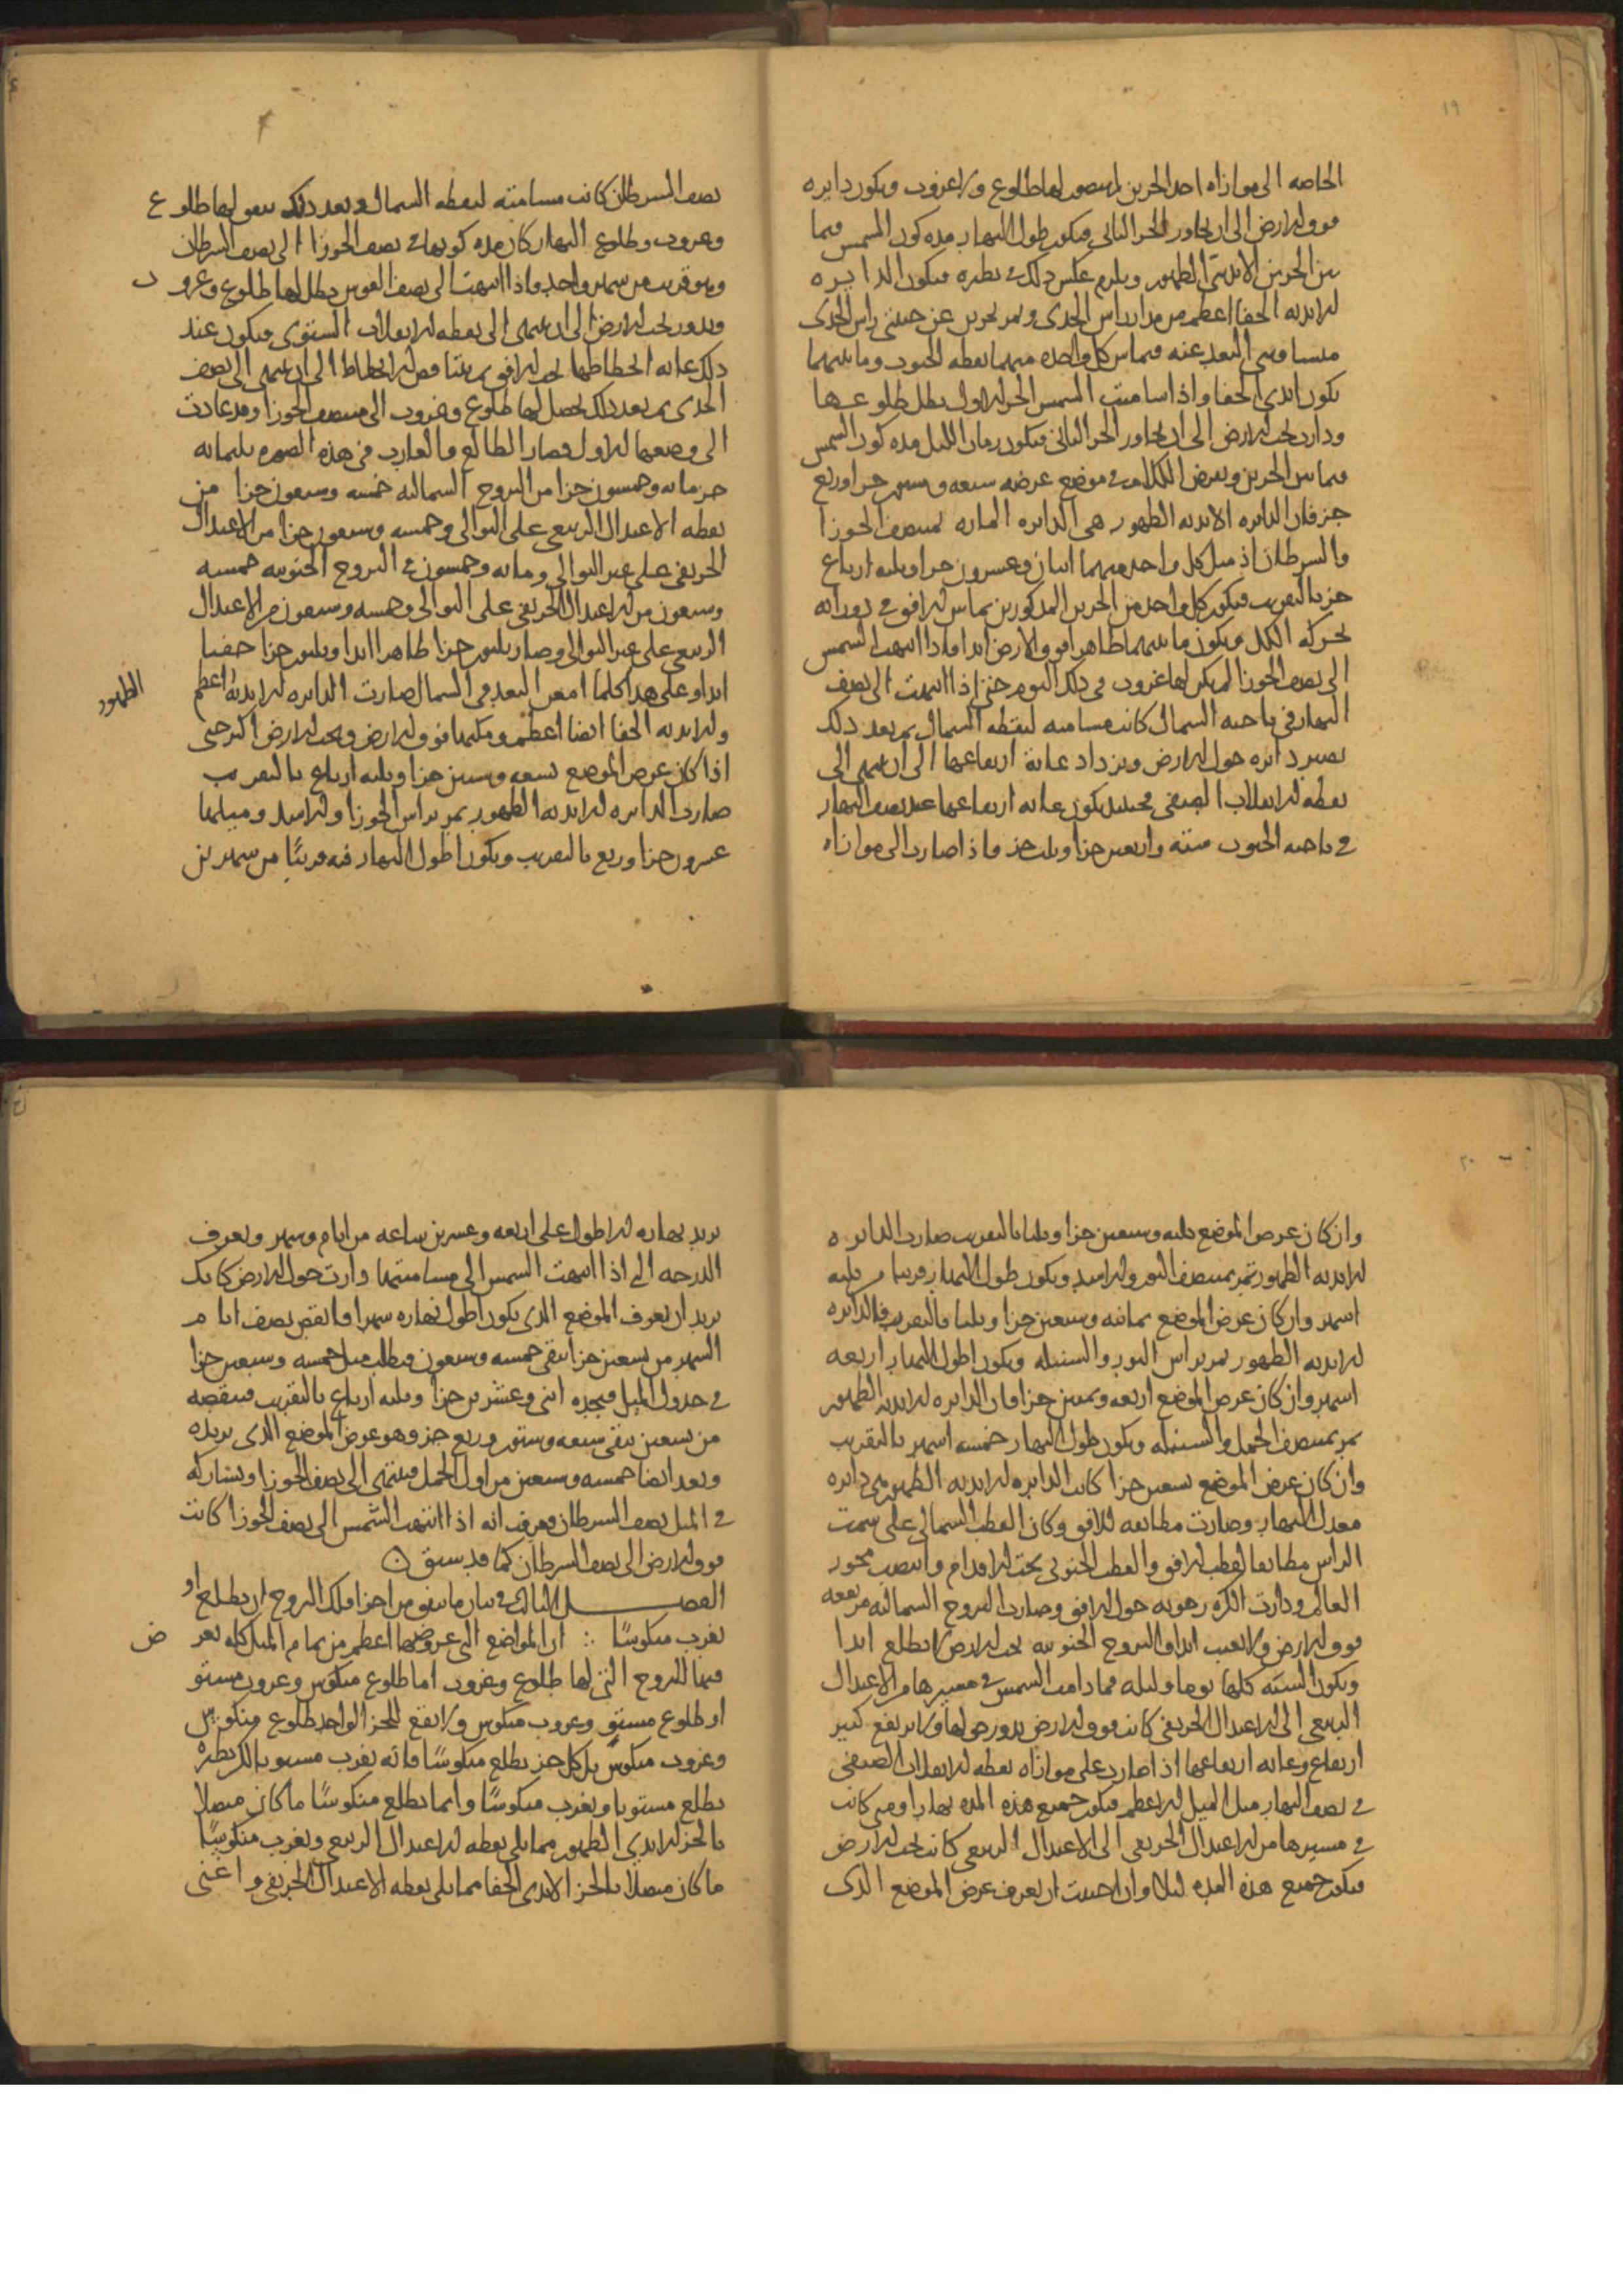 ١٩
الخاصه الى موازاه احد الحزين لم يتصور لها طلوع ولا غروب ويكون دايره
فوق الارض الى ان تجاور الجز الثانى فيكون طول النهار مده كون الشمس فيما
بين الجزين الابديى الظهور ويلزم عكس ذلك فى نظيره فيكون الدايره
الابديه الخفا اعظم من مدار راس الجدى وتمر بجزين عن جنبتى راس الجدى
متساويى البعد عنه فيماس كل واحده منهما نقطه الجنوب وما بينهما
يكون ابدى الخفا واذا سامتت الشمس الجز الاول بطل طلوعها
ودارت تحت الارض الى ان تجاور الجز الثانى فيكون زمان الليل مده كون الشمس
فيما بين الجزين ونفرض الكلام فى موضع عرضه سبعه وستون جزا وربع
جز فان الدايره الابديه الظهور هى الدايره الماره بمنتصف الجوزا
والسرطان اذ ميل كل واحد منهما اثنان وعشرون جزا وثلثه ارباع
جز بالتقريب فيكون كل واحد من الجزين المذكورين يماس الافق فى دورانه
بحركه الكل ويكون ما بينهما ظاهرا فوق الارض ابدا فاذا انتهت الشمس
الى نصف الجوزا لم يكن لها غروب فى ذلك اليوم حتى اذا انتهت الى نصف
النهار فى ناحيه الشمال كانت مسامته لنقطه الشمال ثم بعد ذلك
تصير دايره حول الارض ويزداد غاية ارتفاعها الى ان ينتهى الى
نقطه الانقلاب الصيفى فحينئذ يكون غايه ارتفاعها عند نصف النهار
فى ناحيه الجنوب سته واربعين جزا وثلث جز فاذا صارت الى موازاه
نصف السرطان كانت مسامته لنقطه الشمال وبعد ذلك يتفق لها طلوع
وغروب وطلوع النهار كان مده كونها فى نصف الجوزا الى نصف السرطان
وهو قريب من شهر واحد واذا انتهت الى نصف القوس بطل لها طلوع وغروب
وتدور تحت الارض الى ان ينتهى الى نقطه الانقلاب الشتوى فيكون عند
ذلك غايه انحطاطها تحت الافق ثم يتناقص الانحطاط الى ان ينتهى الى نصف
الجدى ثم بعد ذلك يحصل لها طلوع وغروب الى منتصف الجوزا وقد عادت
الى وضعها الاول فصار الطالع والغارب فى هذه الصوره ثلثمايه
جز مايه وخمسون جزا من البروج الشماليه خمسه وسبعون جزا من
نقطه الاعتدال الربيعى على التوالى وخمسه وسبعون جزا من الاعتدال
الخريفى على غير التوالى ومايه وخمسون فى البروج الجنوبيه خمسه
وسبعون من الاعتدال الخريفى على التوالى وخمسه وسبعون من الاعتدال
الربيعى على غير التوالى وصار ثلثون جزا ظاهرا ابدا وثلثون جزا خفيا
ابدا وعلى هذا كلما امعن البعد فى الشمال صارت الدايره الابديه اعظم
الظهور
والابديه الخفا ايضا اعظم ومكثها فوق الارض وتحت الارض اكثر حتى
اذا كان عرض الموضع تسعه وستين جزا وثلثه ارباع بالتقريب
صارت الدايره الابديه الظهور تمر براس الجوزا والاسد وميلهما
عشرون جزا وربع بالتقريب ويكون اطول النهار فيه قريبا من شهرين
٢٠
وان كان عرض الموضع ثلثه وسبعين جزا وثلثا بالتقريب صارت الدايره
الابديه الظهور تمر بمنتصف الثور والاسد ويكون طول النهار قريبا من ثلثه
اشهر وان كان عرض الموضع ثمانيه وسبعين جزا وثلثا بالتقريب فالدايره
الابديه الظهور تمر براس الثور والسنبله ويكون اطول النهار اربعه
اشهر وان كان عرض الموضع اربعه وثمنين جزا فان الدايره الابديه الظهور
تمر بمنتصف الحمل والسنبله ويكون طول النهار خمسه اشهر بالتقريب
وان كان عرض الموضع تسعين جزا كانت الدايره الابديه الظهور هى دايره
معدل النهار وصارت مطابقه للافق وكان القطب الشمالى على سمت
الراس مطابقا لقطب الافق والقطب الجنوبى تحت الاقدام وانتصب محور
العالم ودارت الكره رحويه حول الافق وصارت البروج الشماليه مرتفعه
فوق الارض ولا تغيب ابدا والبروج الجنوبيه تحت الارض لا تطلع ابدا
وتكون السنه كلها يوما وليله فما دامت الشمس فى مسيرها من الاعتدال
الربيعى الى الاعتدال الخريفى كانت فوق الارض تدور حولها ولا ترتفع كثير
ارتفاع وغايه ارتفاعها اذا صارت على موازاه نقطه الانقلاب الصيفى
فى نصف النهار مثل الميل الاعظم فيكون جميع هذه المده نهارا ومتى كانت
فى مسيرها من الاعتدال الخريفى الى الاعتدال الربيعى كانت تحت الارض
فيكون جميع هذه المده ليلا وان احببت ان تعرف عرض الموضع الذى
يزيد نهاره الاطول على اربعه وعشرين ساعه من ايام وشهر وتعرف
الدرجه التى اذا انتهت الشمس الى مسامتتها دارت حول الارض كانك
تريد ان تعرف الموضع الذى يكون اطول نهاره شهرا فانقص نصف ايام
الشهر من تسعين جزا تبقى خمسه وسبعون فيطلب ميل خمسه وسبعين جزا
فى جدول الميل فيجده اثنى وعشرين جزا وثلثه ارباع بالتقريب فينقصه
من تسعين يبقى سبعه وستون وربع جز وهو عرض الموضع الذى تريده
وبعد ايضا خمسه وسبعين من اول الحمل فينتهى الى نصف الجوزا ويشاركه
فى الميل نصف السرطان فعرفت انه اذا انتهت الشمس الى نصف الجوزا كانت
فوق الارض الى نصف السرطان كما قد سبق ن
الفصل الثالث فى بيان ما يتفق من اجزا فلك البروج ان يطلع او
يغرب منكوسًا ∴ ان المواضع التى عروضها اعظم من تمام الميل كله يعرض
فيها للبروج التى لها طلوع وغروب اما طلوع منكوس وغروب مستو
او طلوع مستو وغروب منكوس ولا يقع للجز الواحد طلوع منكوس
وغروب منكوس بل كل جز يطلع منكوسًا فانه يغرب مستويا لكن نظيره
يطلع مستويا ويغرب منكوسًا وانما يطلع منكوسًا ما كان متصلا
بالجز الابدى الظهور مما يلى نقطه الاعتدال الربيعى ويغرب منكوسًا
ما كان متصلا بالجز الابدى الخفا مما يلى نقطه الاعتدال الخريفى واعنى